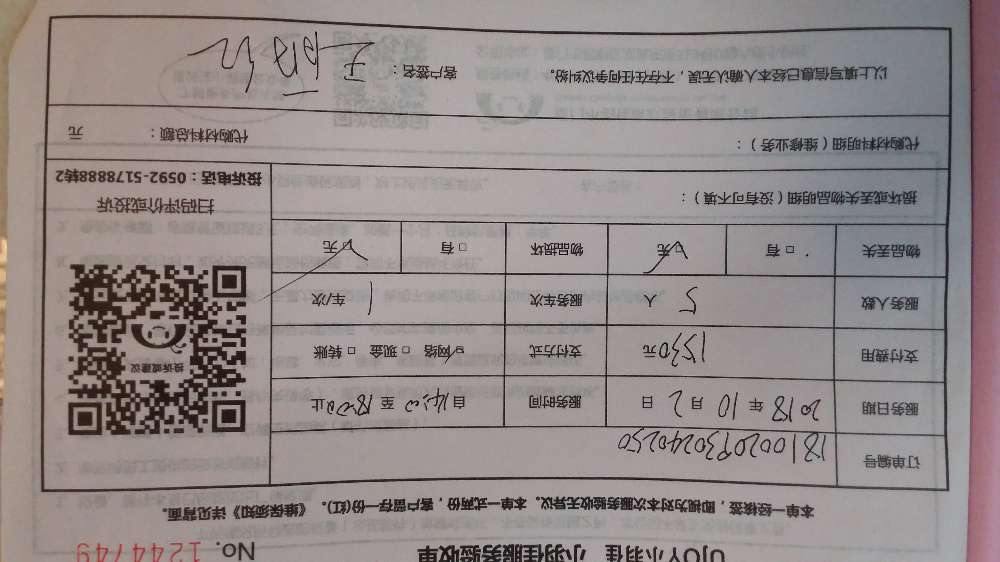 UJOY小羽佳 小羽佳服务验收单 No. 1244749
本单一经核签，即视为对本次服务验收无异议。本单一式两份，客户留存一份(红)。《维保须知》详见背面。
订单编号 1810020930240250
服务日期 2018 年 10 月 2 日 服务时间 自14:00 至 18:00止
支付费用 1530元 支付方式 ☑网络 □ 现金 □ 转账
服务人数 5 人 服务车次 1 车/次
物品丢失 □ 有 ☑无 物品损坏 □ 有 ☑无
投诉或建议
扫码评价或投诉
投诉电话：0592-5178888转2
损坏或丢失物品明细（没有可不填）：
代购材料明细（维修业务）： 代购材料总额： 元
以上填写信息已经本人确认无误，不存在任何争议纠纷。 客户签名： 王